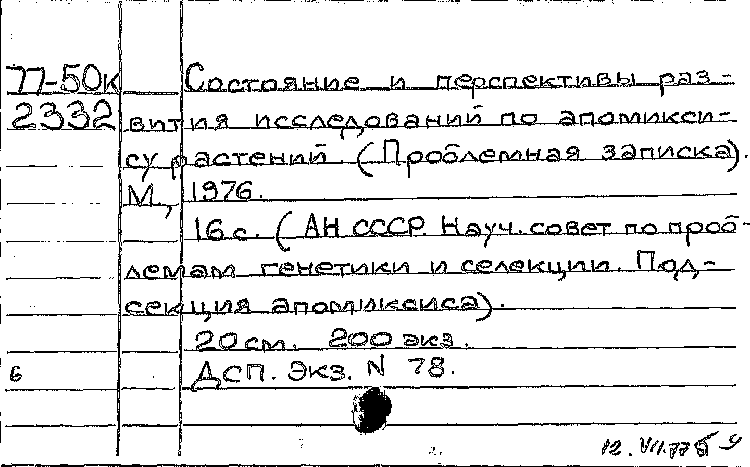 77-50к Состояние и перспективы раз-
2332 вития исследований по апомикси-
су растений. (Проблемная записка).
М., 1976.
16 с. (АН СССР. Науч. совет по проб-
лемам генетики и селекции. Под-
секция апомиксиса).
20 см. 200 экз.
6 ДСП. Экз. N 78.
12.VII.77